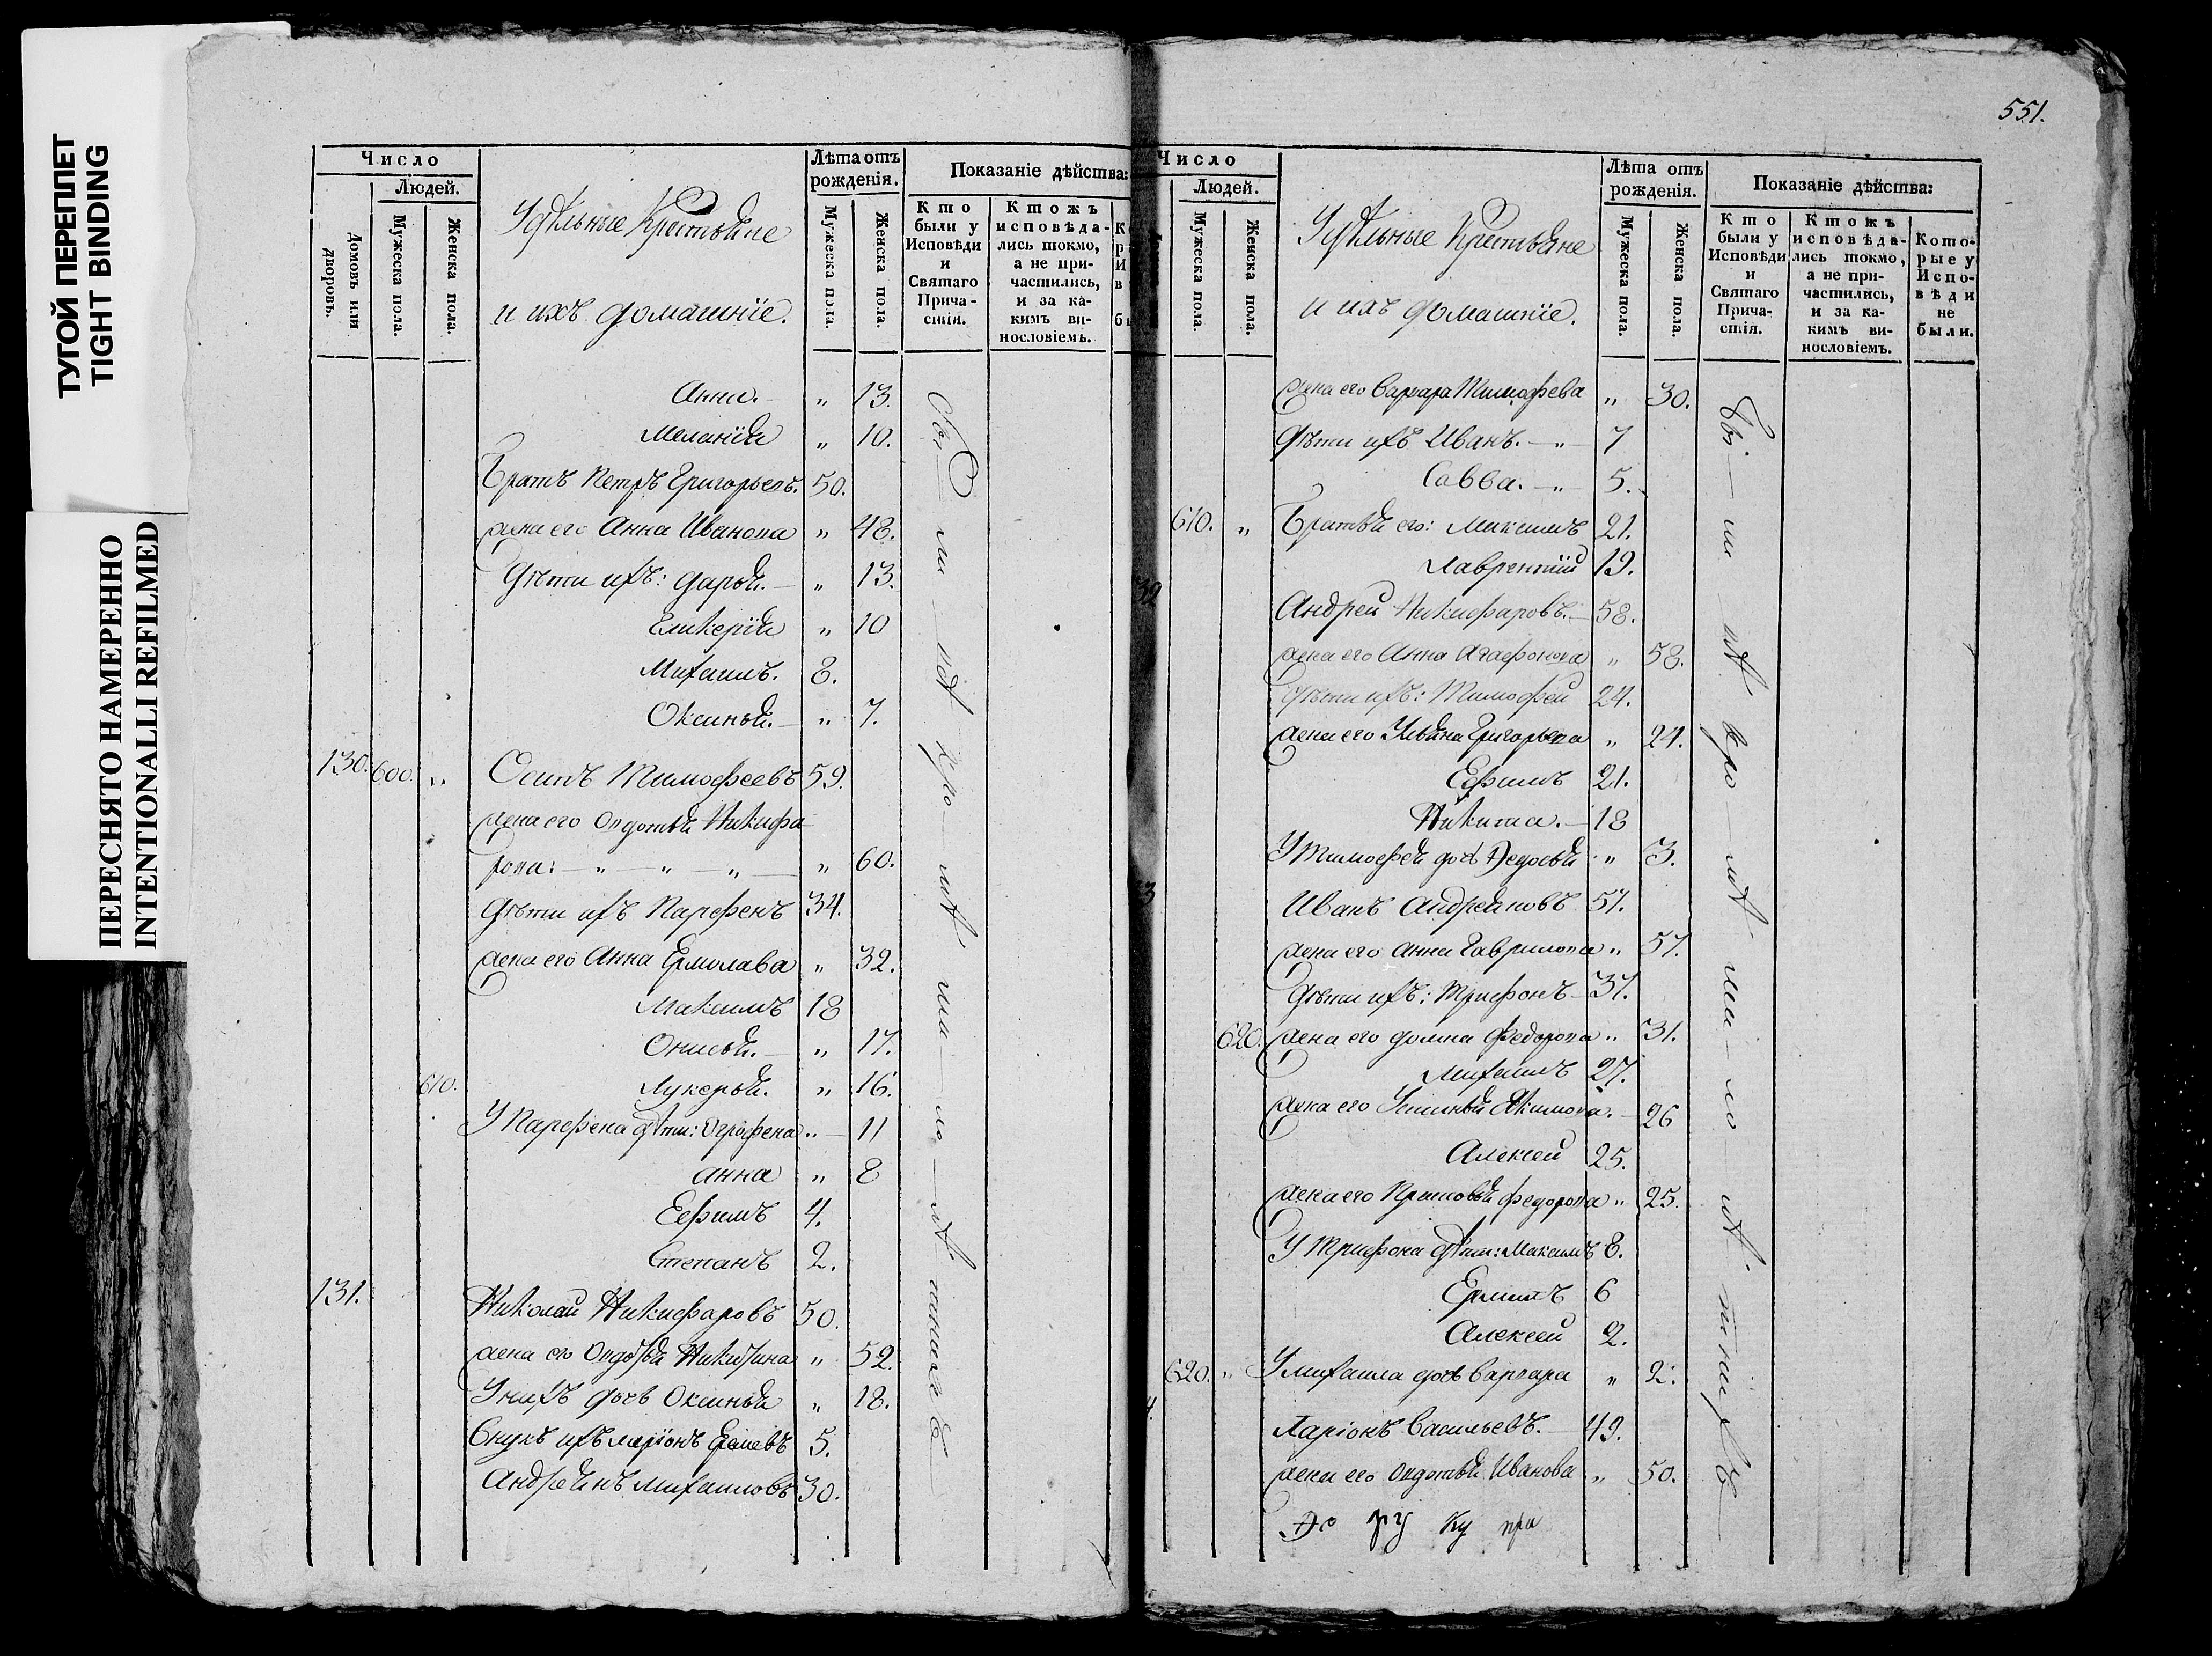 ТУГОЙ ПЕРЕПЛЕТ
TIGHT BINDING
ПЕРЕСНЯТО НАМЕРЕННО
INTENTIONALLI REFILMED
Число
Людей.
Домовъ или дворовъ.
Мужеска пола.
Женска пола.
Удѣльные Крестьяне
и ихъ домашніе.
Лѣта отъ рожденія.
Мужеска пола.
Женска пола.
Показаніе дѣйства:
Кто были у Исповѣди и Святаго Прича-стія.
Ктожъ исповѣда-лись токмо, а не при-частились, и за ка-кимъ ви-нословіемъ.
Анна. „ 13.
Меланія „ 10.
Братъ Петръ Григорьевъ. 50.
жена его Анна Иванова „ 48.
Дѣти ихъ: Дарья. „ 13.
Гликерія „ 10
Михаилъ. 8.
Оксинья. „ 7.
130. 600. „ Осипъ Тимофеевъ 59.
жена его Овдотья Никифо
рова: „ „ „ „ 60.
Дѣти ихъ Парфенъ 34.
жена его Анна Ермолава „ 32.
Максимъ 18
Онисья. „ 17.
610. Лукерья. „ 16.
У Парфена дѣти: Огрофена „ 11
анна „ 8
Ефимъ 4.
Степанъ 2.
131. Николай Никифаровъ 50.
жена его Овдотья Никитина „ 52.
У нихъ дочь Оксинья „ 18.
Внукъ ихъ ларіонъ 5.
Андреянъ михаиловъ 30.
551.
Число
Людей.
Мужеска пола.
Женска пола.
Удѣльные Крестьяне
и ихъ домашніе.
Лѣта отъ рожденія.
Мужеска пола.
Женска пола.
Показаніе дѣйства:
Кто были у Исповѣди и Святаго Прича-стія.
Ктожъ исповѣда-лись токмо, а не при-частились, и за ка-кимъ ви-нословіемъ.
Кото-рые у Испо-вѣди не были.
жена его Варвара Тимофева „ 30.
Дѣти ихъ Иванъ. „ 7
Савва. „ 5.
610. „ Братья его: Максимъ 21.
Лаврентий 19.
Андрей Никифаровъ. 58.
жена его Анна Агафонова „ 58.
Дѣти ихъ: Тимофей 24.
жена его Ульяна Григорьева „ 24.
Ефимъ 21.
Никита. 18
У Тимофея дочь Федосья „ 3.
Иванъ Андреяновъ 57.
жена его анна Гаврилова „ 57.
Дѣти ихъ: Трифонъ 37.
620. жена его домна Федорова „ 31.
Михаилъ 27.
жена его Устинья Якимова. 26
Алексей 25.
жена его Прасковья федорова „ 25.
У Трифона дѣти: Максимъ 8.
6
Алексей 2.
620. „ У михаила дочь Варвара „ 2.
Ларіонъ Васильевъ. 49.
жена его Овдотья Иванова „ 50.
ру ку при